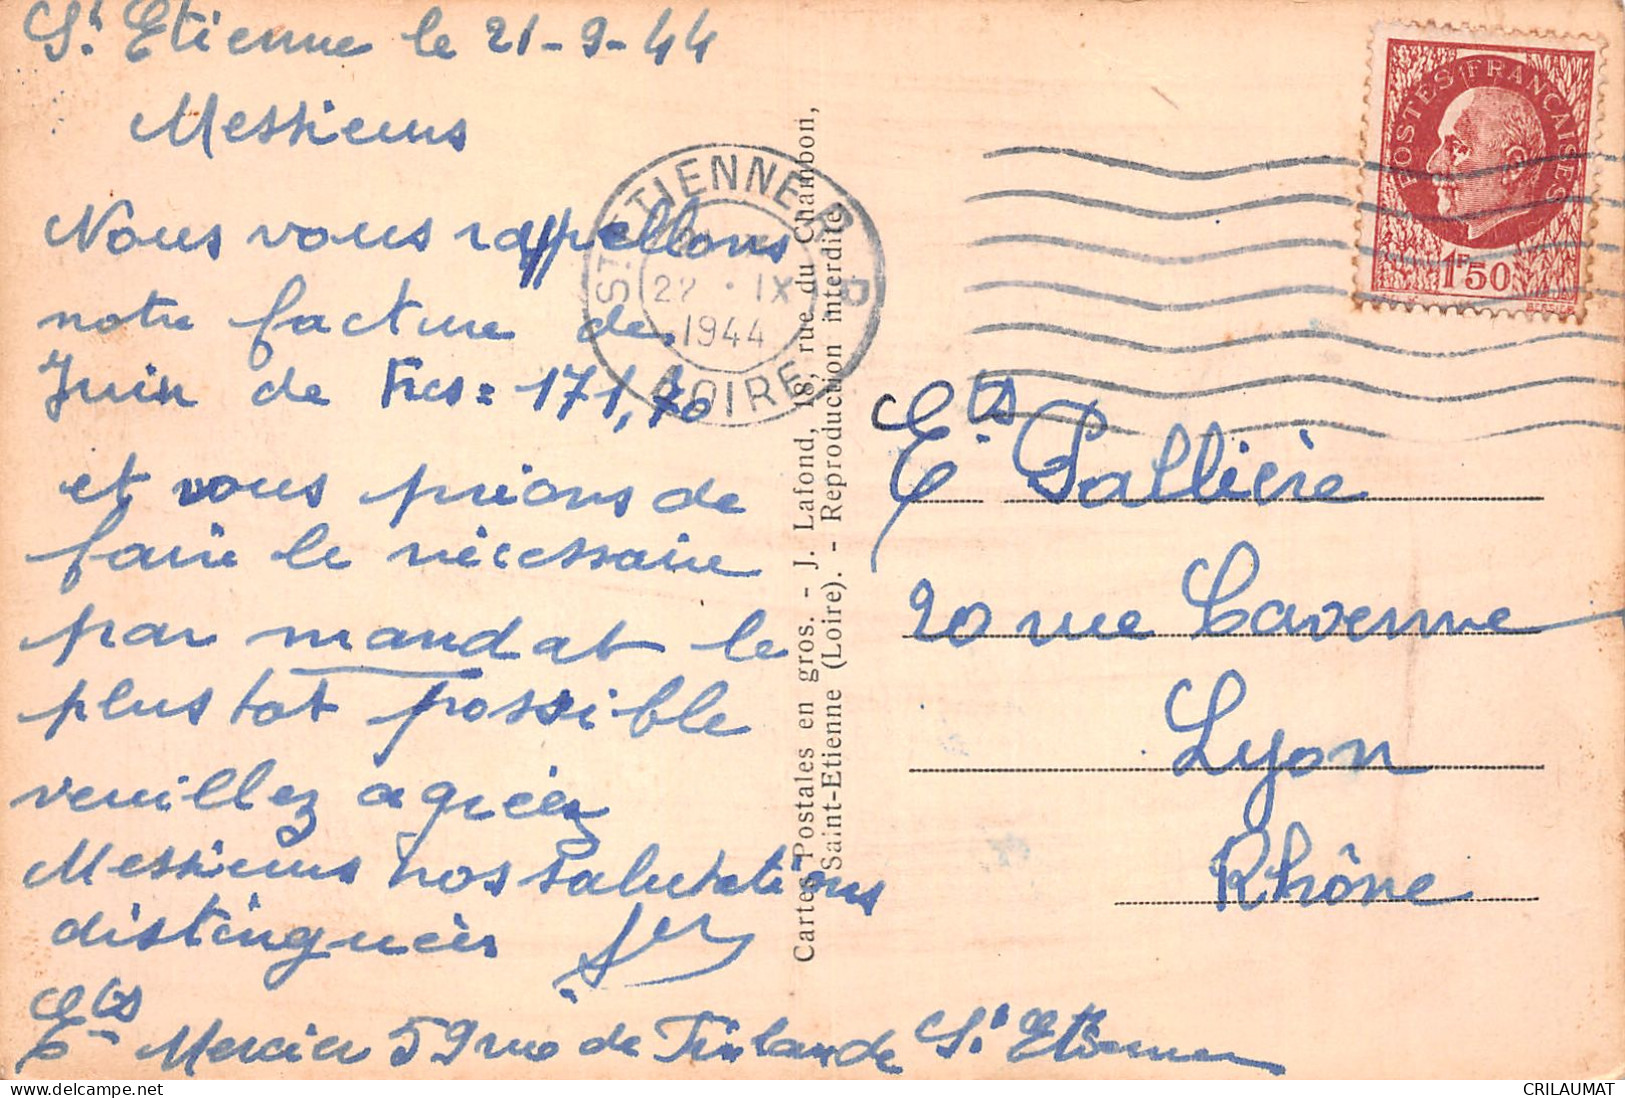 St Etienne le 21-9-44
Messieurs
Nous vous rappellons
notre facture de
Juin de Frcs = 171,70
et vous prions de
faire le nécessaire
par mandat le
plus tot possible
veuillez agréér
Messieurs nos salutations
distinguées
Ets Mercier 59 rue de Finlande St Etienne
Cartes Postales en gros. - J. Lafond, 18, rue du Chambon,
Saint-Etienne (Loire). - Reproduction interdite
ST ETIENNE R.P.
22 · IX
1944
LOIRE
POSTES FRANÇAISES
1F50
Ets Pallière
20 rue Caverne
Lyon
Rhône
delcampe.net
CRILAUMAT